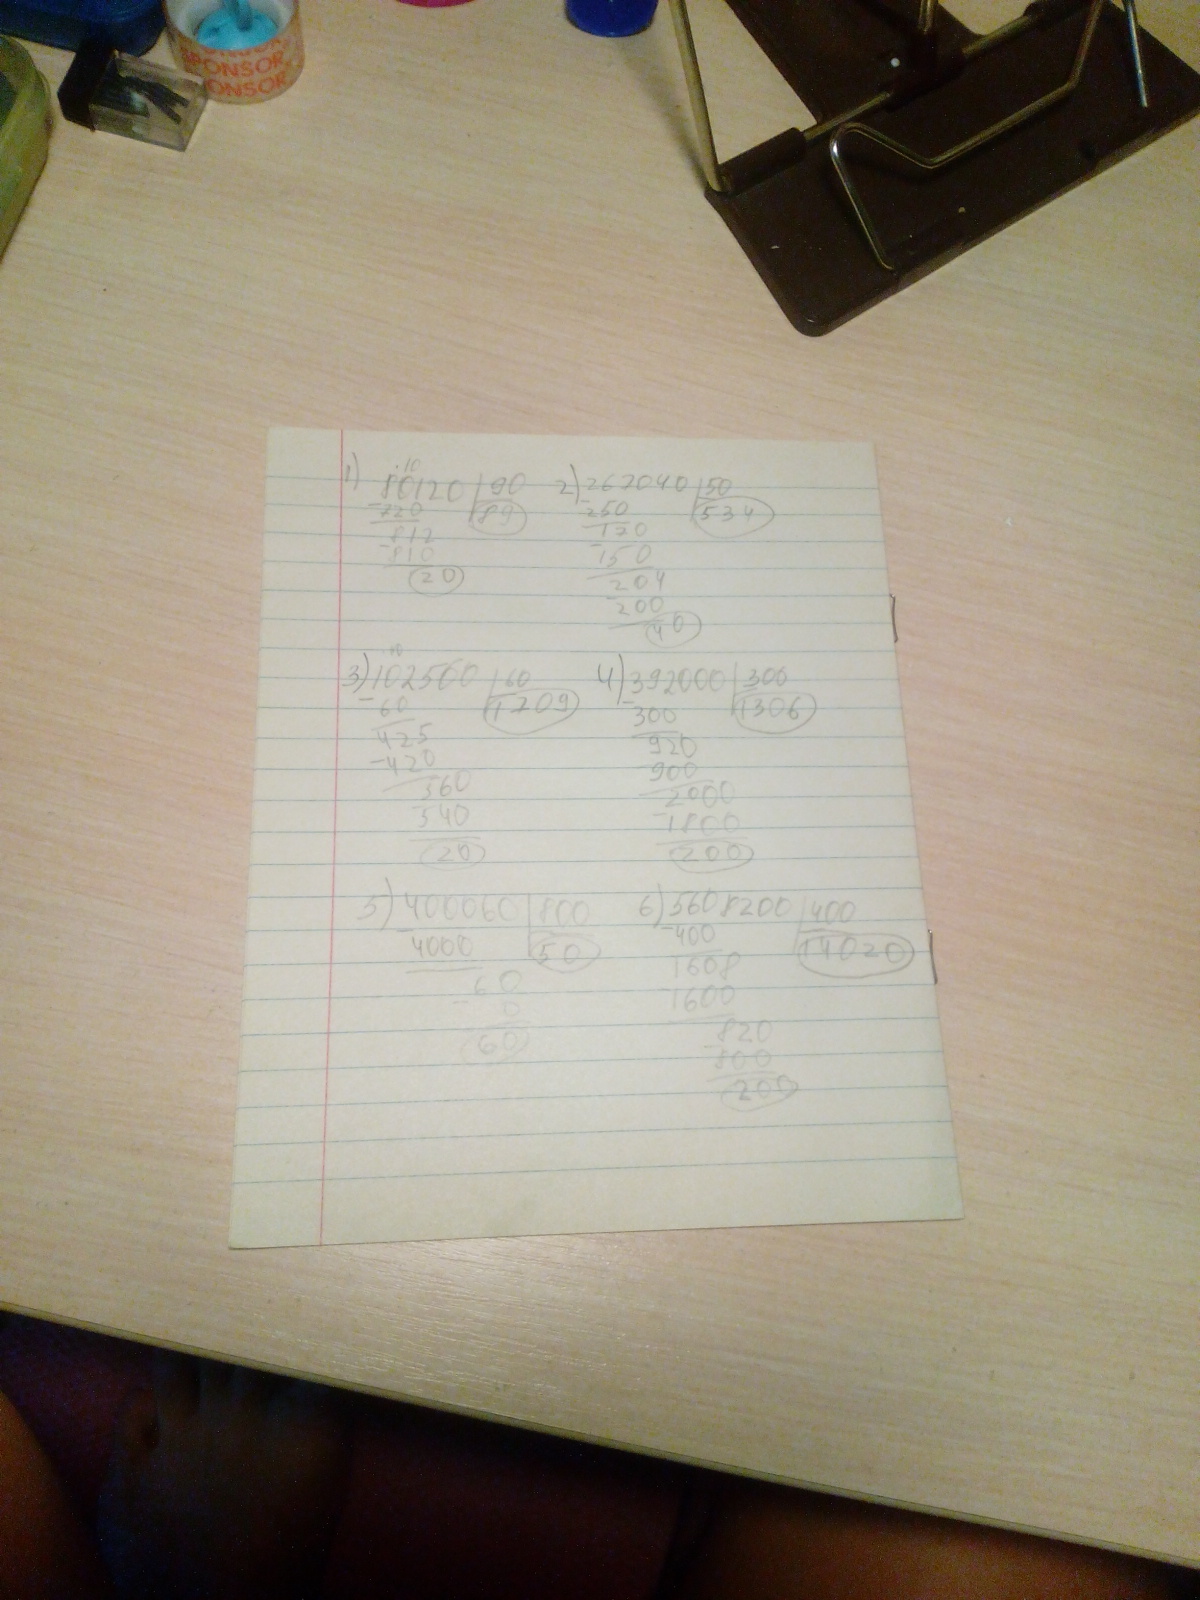 SPONSOR
PONSOR
1) 80120 | 90
10
-720 | 89
812
-810
20
2) 267040 | 50
-250 | 534
170
-150
204
-200
40
3) 102560 | 60
10
-60 | 1709
425
-420
560
-540
20
4) 392000 | 300
-300 | 1306
920
-900
2000
-1800
200
5) 400060 | 800
-4000 | 50
60
-0
60
6) 5608200 | 400
-400 | 14020
1608
-1600
820
-800
200